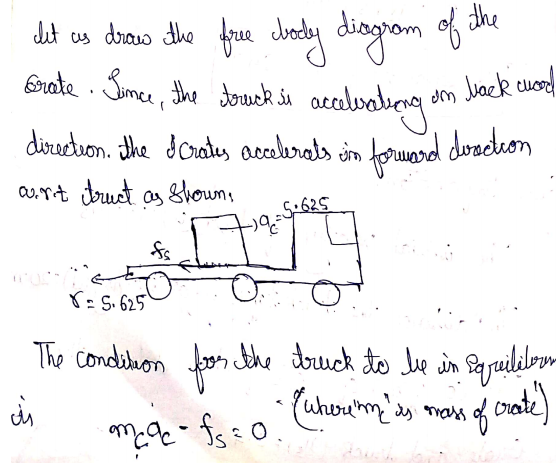 Let us draw the free body diagram of the
Crate. Since, the truck is accelerating in backward
direction. the Crates accelerats in forward direction
w.r.t truct as Shown,
a_c = 5.625
f_s
r = 5.625
The condition for the truck to be in Equilibrium
is m_c a_c - f_s = 0 (where "m_c" is mass of crate)